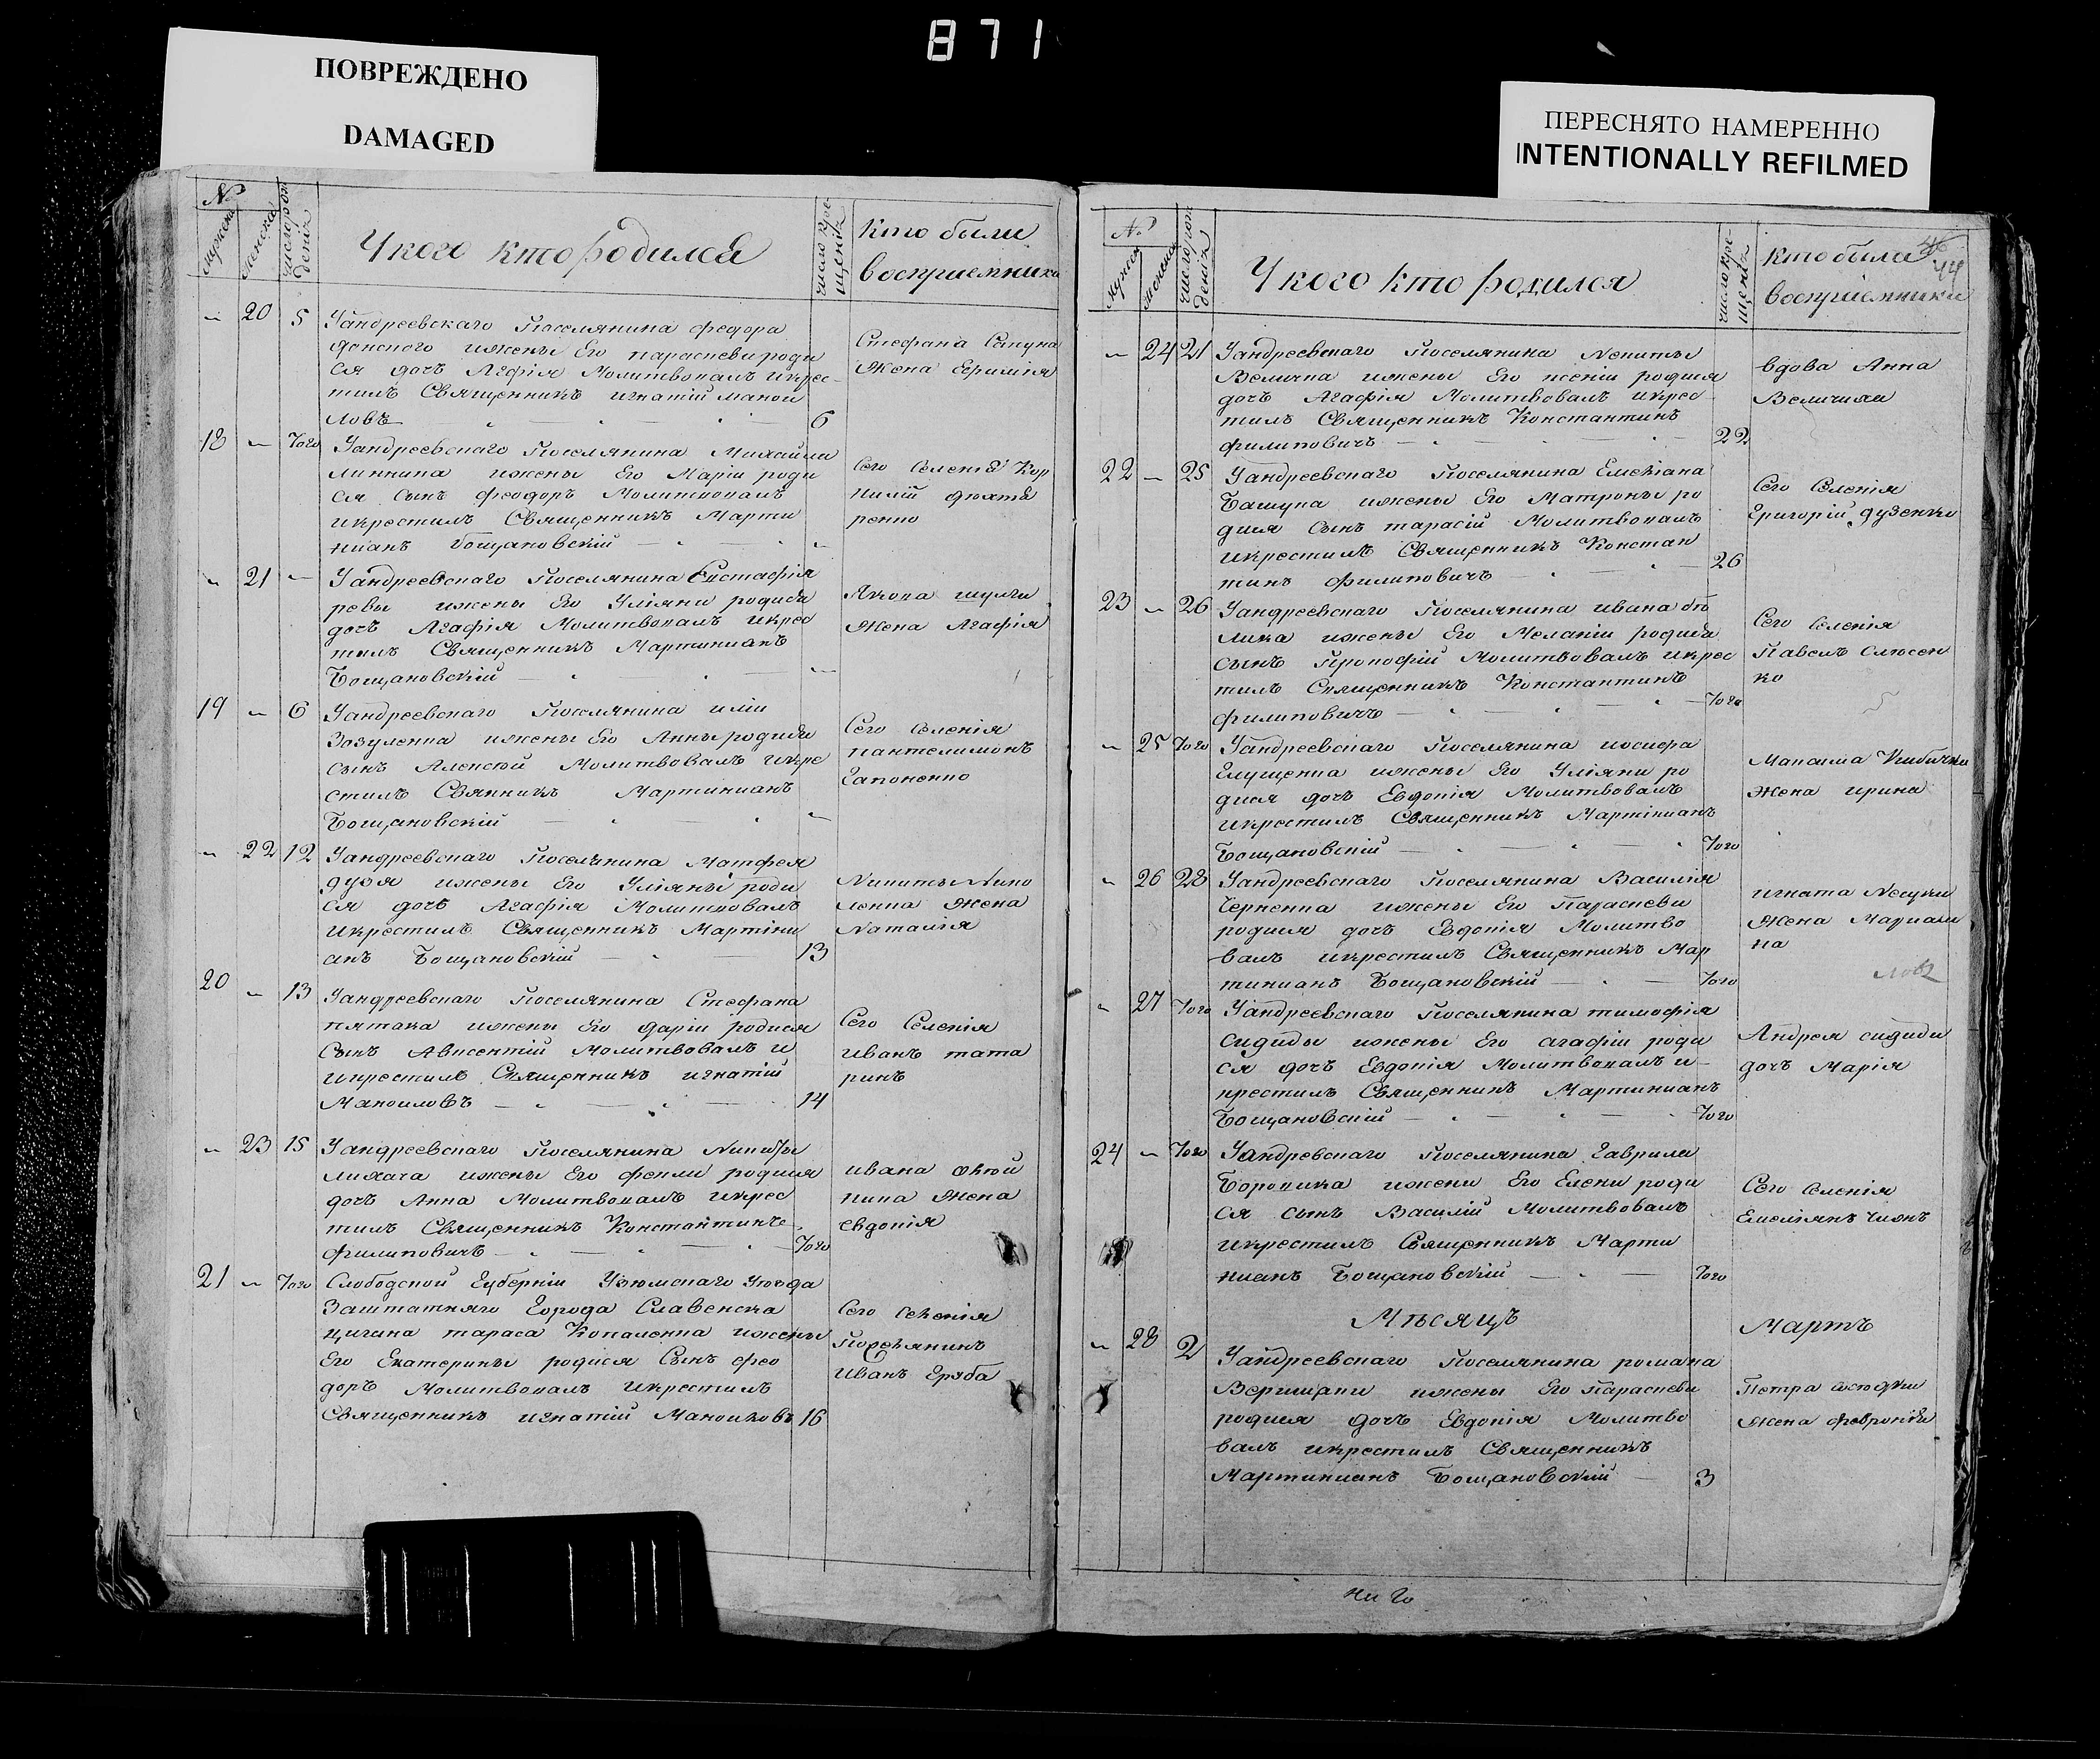 871
ПОВРЕЖДЕНО
DAMAGED
ПЕРЕСНЯТО НАМЕРЕННО
INTENTIONALLY REFILMED
№
мужска
женска
число рож
денія
У кого кто родился
число кре-
щенія
кто были
восприемники
20 5 У андреевскаго Поселянина федора
донского ижены Его параскеви роди
ся дочь Агфія Молитвовалъ икрес-
тилъ Священникъ игнатій маной
ловъ 6
Стефана Сапуна
жена
18 Того У андреевскаго Поселянина Михайла
линника ижены Его Маріи роди
ся сынъ феодоръ Молитвовалъ
икрестилъ Священникъ Марти
ніанъ Бощановскій
Сего Селенія Кор
нилій
21 У андреевскаго Поселянина Евстафія
ревы ижены Его Уліяни родися
дочь Агафія Молитвовалъ икрес
тилъ Священникъ Мартиніанъ
Бощановскій
Якова шулги
жена Агафія
19 6 У андреевскаго Поселянина иліи
Зозуленка ижены Его Анны родися
сынъ Алексѣй Молитвовалъ икре
стилъ Свянникъ Мартиніанъ
Бощановскій
Сего Селенія
пантелимонъ
Гапоненко
22 12 У андреевскаго Поселянина Матфея
дузя ижены Его Уліяны роди
ся дочь Агафія Молитвовалъ
икрестилъ Священникъ Мартини
анъ Бощановскій 13
Никиты Нико
ленка жена
Наталія
20 13 У андреевскаго Поселянина Стефана
пятака ижены Его даріи родися
Сынъ Авксентій Молитвовалъ и
икрестилъ Священникъ игнатій
Маноиловъ 14
Сего Селенія
иванъ тата
ринъ
23 15 У андреевскаго Поселянина Никиты
лихача ижены Его феклы родися
дочь Анна Молитвовалъ икрес
тилъ Священникъ Константинъ
филиповичъ Того
ивана
жена
Евдокія
21 Того Слободской Губерніи Изюмскаго уѣзда
Заштатняго Города Славенска
цигана тараса Коваленка ижены
Его Екатерины родися Сынъ фео
доръ Молитвовалъ икрестилъ
Священникъ игнатій Маноиловъ 16
Сего Селенія
Поселянинъ
иванъ Гряба
№
мужска
женска
число рож
денія
У кого кто родился
число кре-
щенія
кто были
восприемники
44
24 21 У андреевскаго Поселянина Никиты
Велична ижены Его ксеніи родися
дочь Агафія Молитвовалъ икрес
тилъ Священникъ Константинъ
филиповичъ 22
вдова Анна
22 25 У андреевскаго Поселянина Емеліана
Башука ижены Его Матроны ро
дися сынъ тарасій Молитвовалъ
икрестилъ Священникъ Констан
тинъ филиповичъ 26
Сего Селенія
Григорій дузенко
23 26 У андреевскаго Поселянина ивана бѣ
лика ижены Его Меланіи родися
сынъ Прокофій Молитвовалъ икрес
тилъ Священникъ Константинъ
филиповичъ Того
Сего Селенія
Павелъ слюсен
ко
25 Того У андреевскаго Поселянина иосифа
Глущенка ижены Его Уліяни ро
дися дочь Евдокія Молитвовалъ
икрестилъ Священникъ Мартініанъ
Бощановскій Того
Максима
жена ирина
26 28 У андреевскаго Поселянина Василія
Черненка ижены Его Параскеви
родися дочь Евдокія Молитво
валъ икрестилъ Священникъ Мар
тиніанъ Бощановскій Того
игната
жена Маріам
на
27 Того У андреевскаго Поселянина тимофія
сидиды ижены Его агафіи роди
ся дочь Евдокія Молитвовалъ и
крестилъ Священникъ Мартиніанъ
Бощановскій Того
Андрея сидиди
дочь Марія
24 Того У андревскаго Поселянина Гаврила
Боровика ижени Его Елени роди
ся сынъ Василій Молитвовалъ
икрестилъ Священникъ Марти
ніанъ Бощановскій Того
Сего Селенія
Емеліянъ
Мѣсяцъ Мартъ
28 2 У андреевскаго Поселянина романа
ижены Его Параскеви
родися дочь Евдокія Молитво
валъ икрестилъ Священникъ
Мартиніанъ Бощановскій 3
Петра
жена февронія